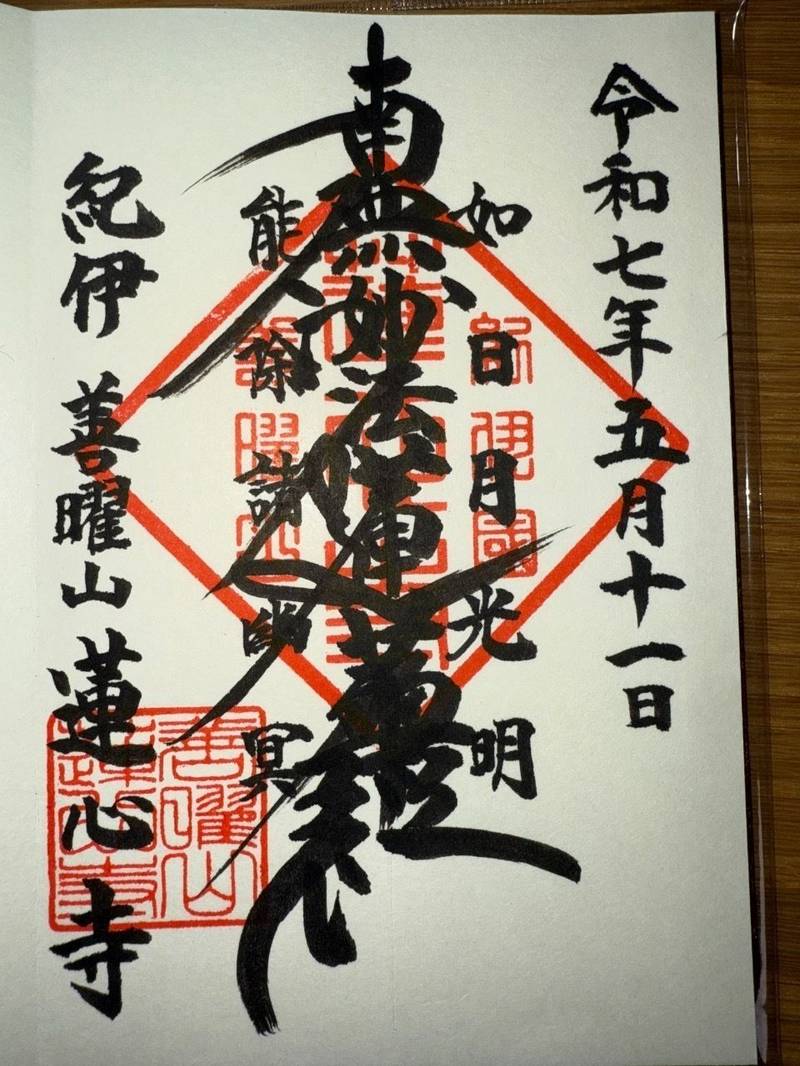 令和七年五月十一日
如日月光明
南無妙法蓮華経
能除諸幽冥
紀伊 善曜山 蓮心寺
善曜山
蓮心寺